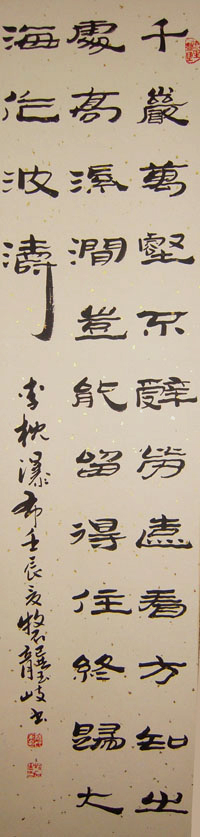 千巖萬壑不辭勞遠看方知出
處高溪澗豈能留得住終歸大
海作波濤
李忱瀑布壬辰夏牧石